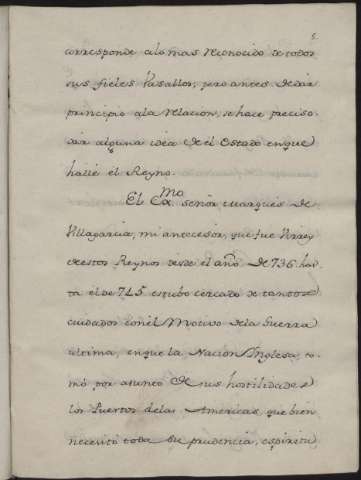 5.
corresponde alo mas reconocido de todos
sus fieles Vasallos; pero antes de dar
principio ala relacion, se hace preciso
dar alguna idea de el Estado en que
hallé el Reyno.
El Exmo. señor Marqués de
Villagarcia, mi antecesor, que fue Virrey
de estos Reynos desde el año De 736 has-
ta el de 745 estubo cercado de tantos
cuidados con el Motivo dela Guerra
ultima, en que la Nacion Inglesa, to-
mó por asunto De sus hostilidades
los Puertos delas Americas, que bien
necesitó toda su prudencia, espiritu